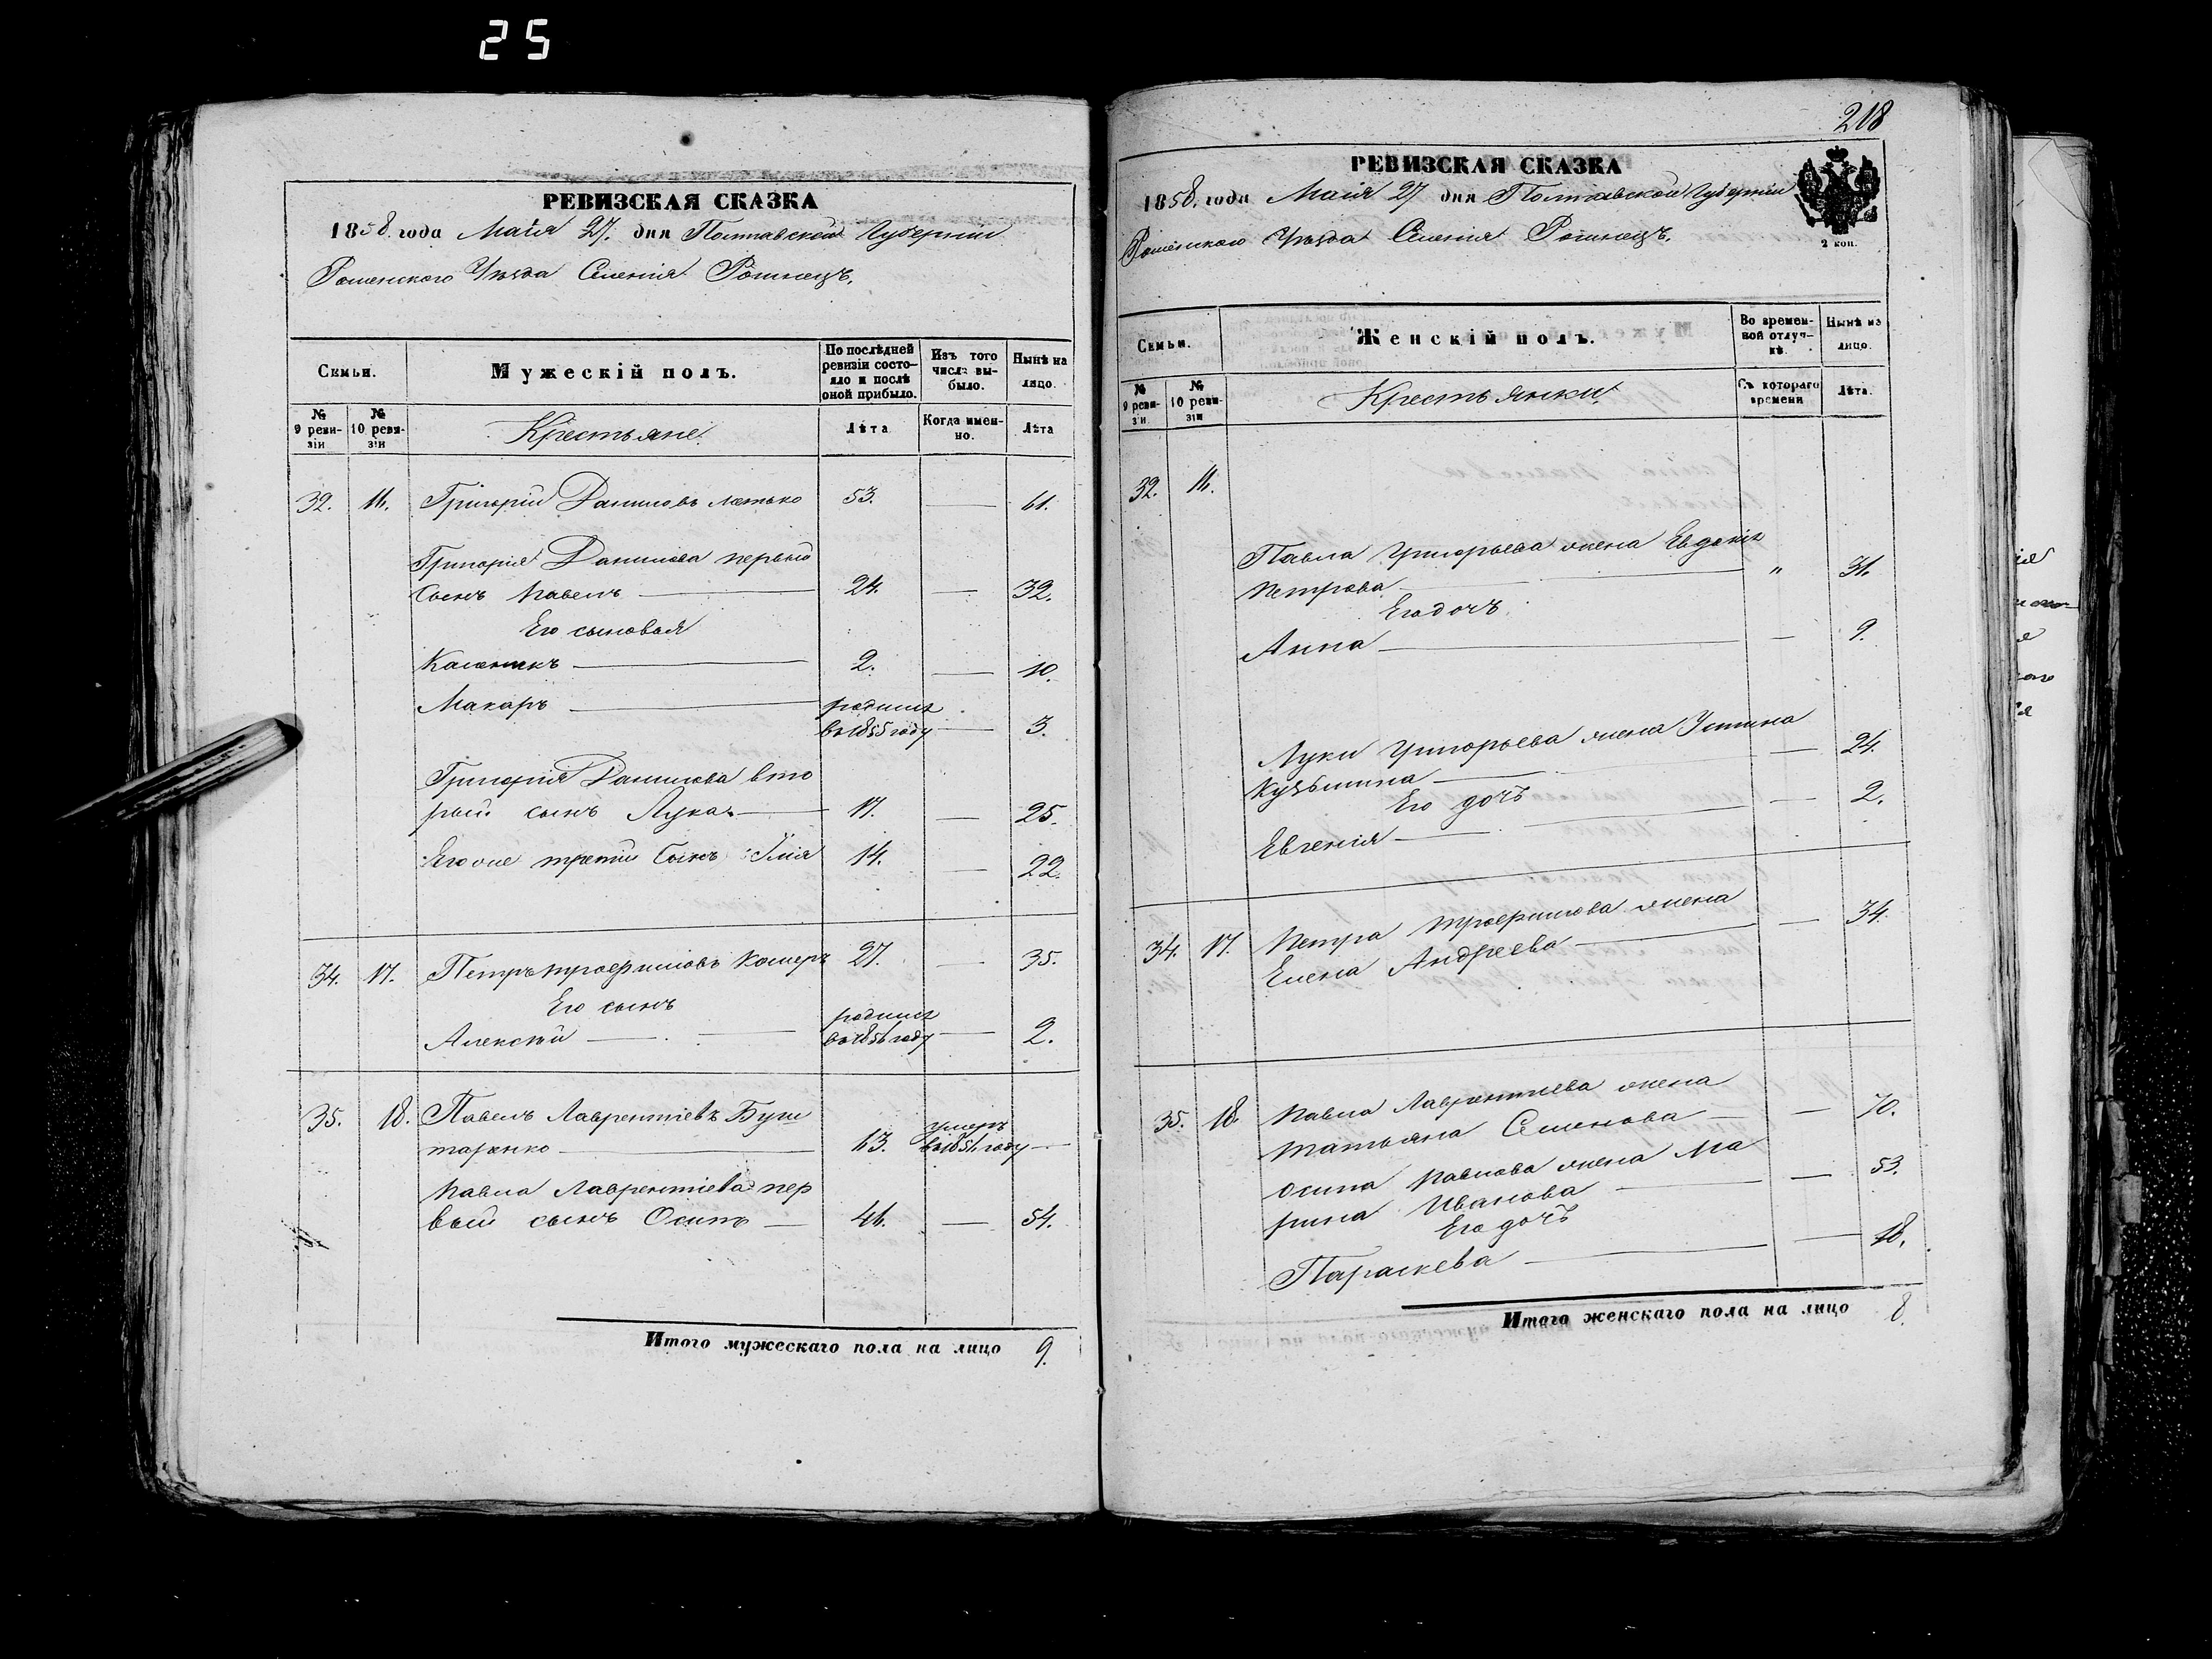 25
РЕВИЗСКАЯ СКАЗКА
1858. года Маія 27. дня Полтавской Губерніи
Роменского Уѣзда Селенія
Семьи.
Мужескій полъ.
По послѣдней ревизіи состояло и послѣ оной прибыло.
Изъ того числа выбыло.
Нынѣ на лицо.
№ 9 ревизіи
№ 10 ревизіи
Крестьяне.
Лѣта
Когда именно.
Лѣта
32. 16. Григорій Даниловъ 53. — 61.
Григорія Данилова первый
сынъ Павелъ — 24. — 32.
Его сыновья
Каленикъ — 2. — 10.
Макаръ — родился
въ 1855 году — 3.
Григорія Данилова вто
рый сынъ Лука — 17. — 25.
Его же третій Сынъ Илія 14. — 22.
34. 17. Петръ Трофимовъ 27. — 35.
Его сынъ
Алексѣй — родился
въ 1856 году — 2.
35. 18. Павелъ Лаврентіевъ
таренко — 63. умеръ
въ 1851 году —
Павла Лаврентіева пер
вый сынъ Осипъ — 46. — 54.
Итого мужескаго пола на лицо 9.
218
РЕВИЗСКАЯ СКАЗКА
1858. года Маія 27 дня Полтавской Губерніи
Роменского Уѣзда Селенія
2 коп.
Семьи.
Женскій полъ.
Во временной отлучкѣ.
Нынѣ на лицо.
№ 9 ревизіи
№ 10 ревизіи
Крестьянки
Съ котораго времени
Лѣта.
32. 16.
Павла Григорьева жена Евдокія
Петрова — " 31.
Его дочь
Анна — — 9.
Луки Григорьева жена Устина
Кузьмина — — 24.
Его дочь
Евгенія — — 2.
34. 17. Петра Трофимова жена
Елена Андреева — — 34.
35. 18. Павла Лаврентіева жена
Татьяна Семенова — — 70.
Осипа Павлова жена Ма
рина Иванова — — 53.
Его дочь
Параскева — — 18.
Итого женскаго пола на лицо 8.